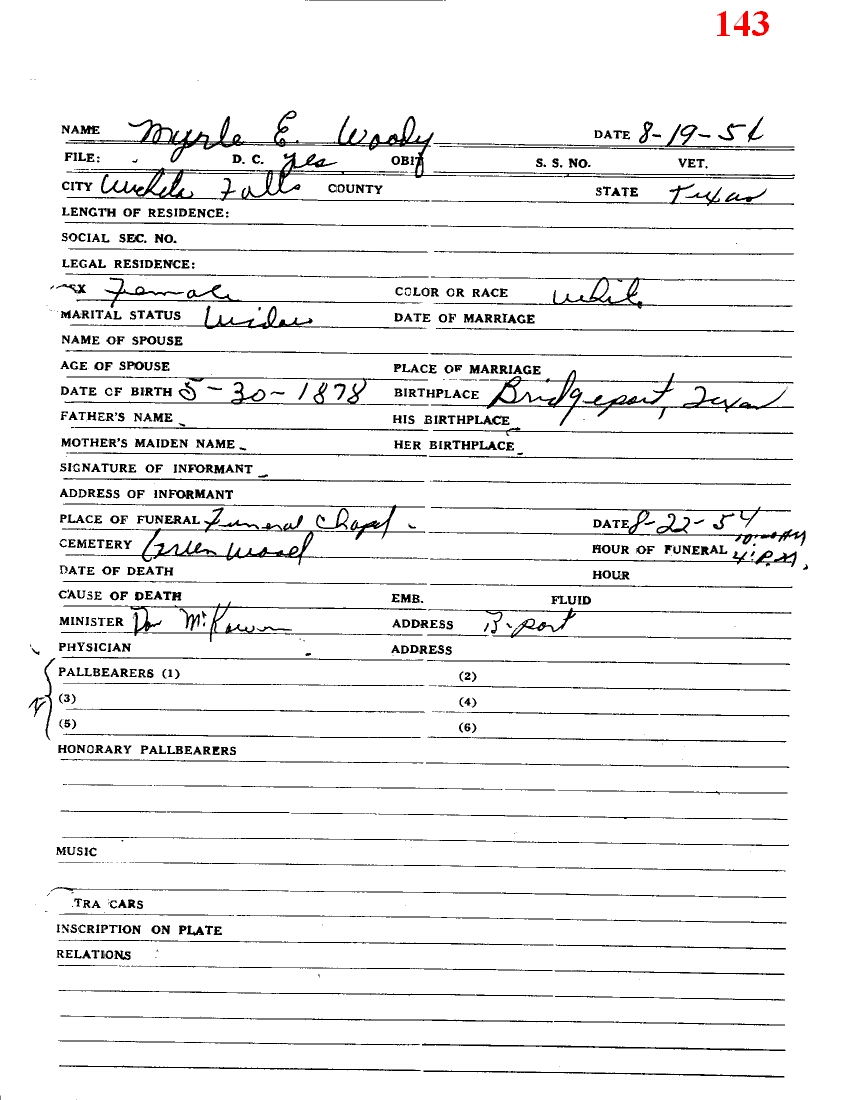 143
NAME Myrle E. Woody DATE 8-19-54
FILE: D. C. yes OBIT S. S. NO. VET.
CITY Wichita Falls COUNTY STATE Texas
LENGTH OF RESIDENCE:
SOCIAL SEC. NO.
LEGAL RESIDENCE:
Female COLOR OR RACE White
MARITAL STATUS Widow DATE OF MARRIAGE
NAME OF SPOUSE
AGE OF SPOUSE PLACE OF MARRIAGE
DATE OF BIRTH 5-30-1878 BIRTHPLACE Bridgeport, Texas
FATHER'S NAME HIS BIRTHPLACE
MOTHER'S MAIDEN NAME HER BIRTHPLACE
SIGNATURE OF INFORMANT
ADDRESS OF INFORMANT
PLACE OF FUNERAL Funeral Chapel DATE 8-22-54
CEMETERY Greenwood HOUR OF FUNERAL 4: P.M.
DATE OF DEATH HOUR
CAUSE OF DEATH EMB. FLUID
MINISTER ADDRESS B-port
PHYSICIAN ADDRESS
PALLBEARERS (1) (2)
(3) (4)
(5) (6)
HONORARY PALLBEARERS
MUSIC
TRA CARS
INSCRIPTION ON PLATE
RELATIONS